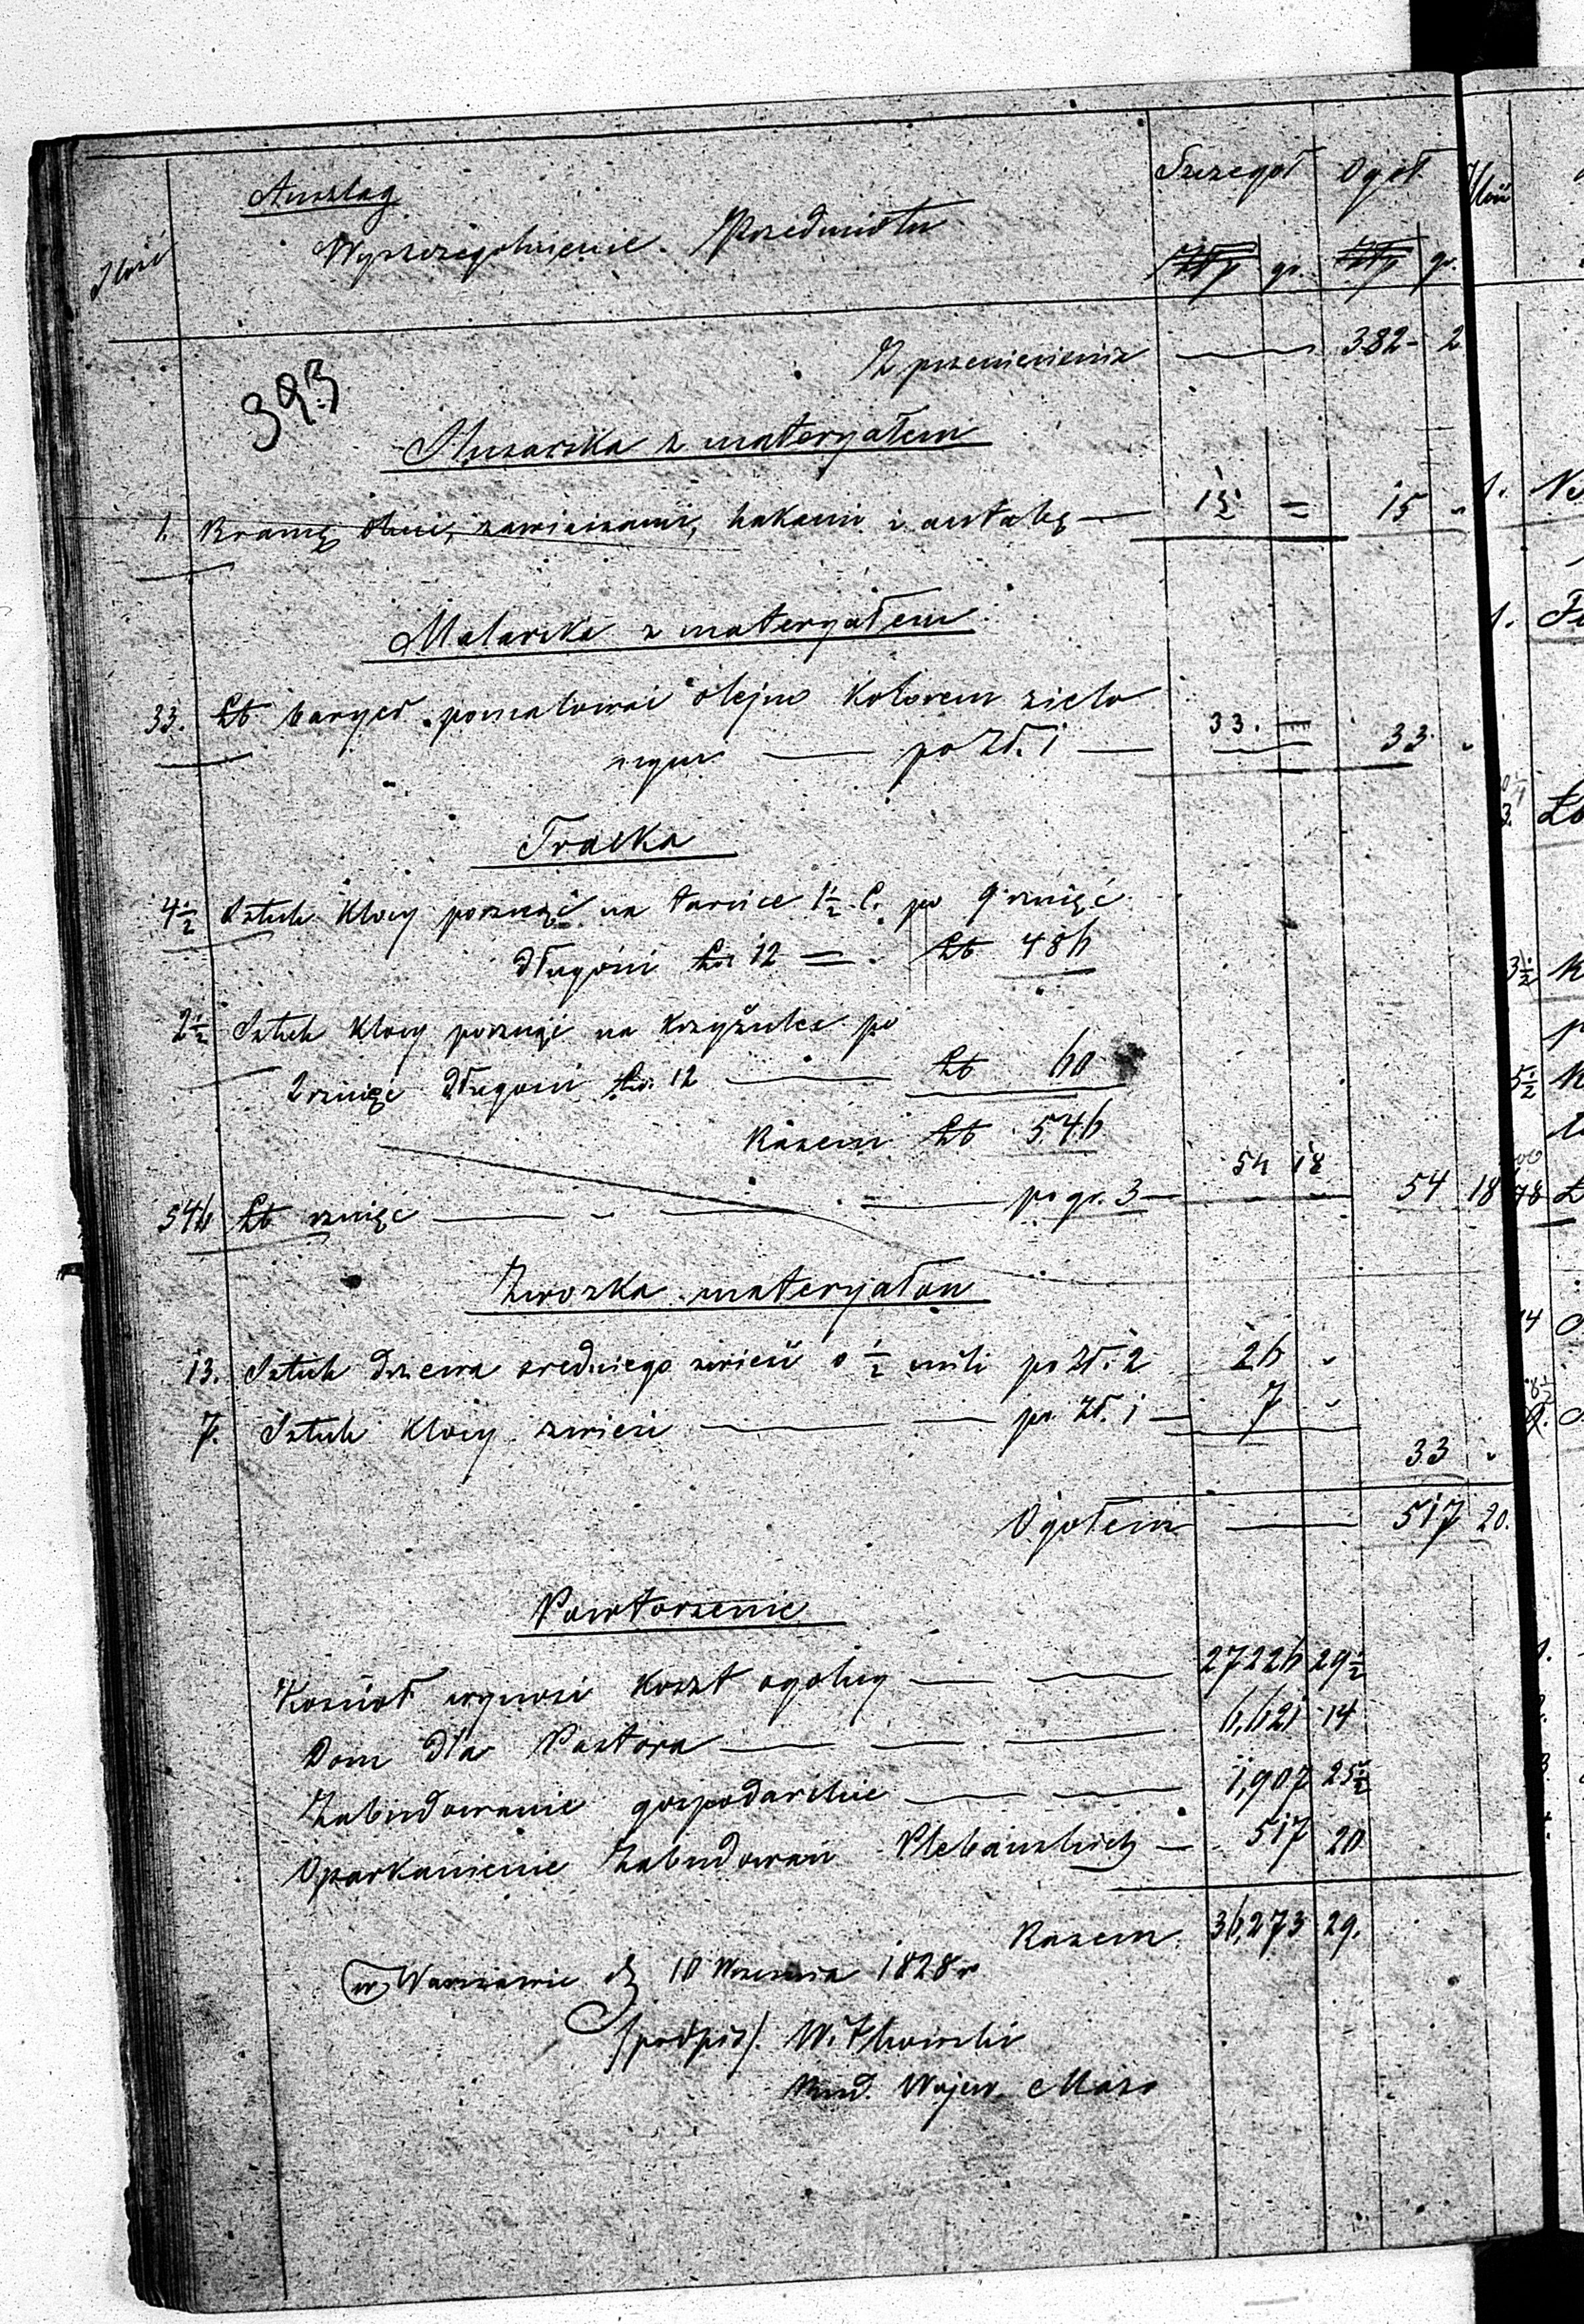 Anszlag
Ilość Wyszczególnienie Przedmiotu Szczegół Ogół
Złp gr. Złp gr.
Z przeniesienia — 382 - 2
393
Slusarska z materyałem
1. Bramę okuć, zawiasami, hakami i antabą — 15 = 15 "
Malarska z materyałem
33. Łb baryer pomalować olejno kolorem zielo
nym — po Zł. 1 — 33. — 33. "
Tracka
4½ Sztuk klocy porznąć na tarcice 1½ C. po 9 rznięć
długości Łci 12 = . Łb 486
2½ Sztuk klocy porznąć na krzyżulce po
2 rznięć długości Łci 12 — Łb 60
Razem Łb 546
546 Łb rznięć — po gr. 3 — 54 18 54 18
Zwozka materyałów
13. Sztuk drzewa sredniego zwieść o ½ mili po Zł. 2 26 "
7. Sztuk klocy zwieść — po Zł. 1 — 7 "
33 "
Ogółem — 517 20.
Powtorzenie
Kościoł wynosi koszt ogolny — 27226 29½
Dom dla Pastora — 6,621 14
Zabudowanie gospodarskie — 1,907 25½
Oparkanienie Zabudowań Plebańskich — 517 20
Razem 36,273 29.
w Warszawie d 10 Wrzesnia 1828 r
/podpis/. Witkowski
Bud. Wojew. Mazo